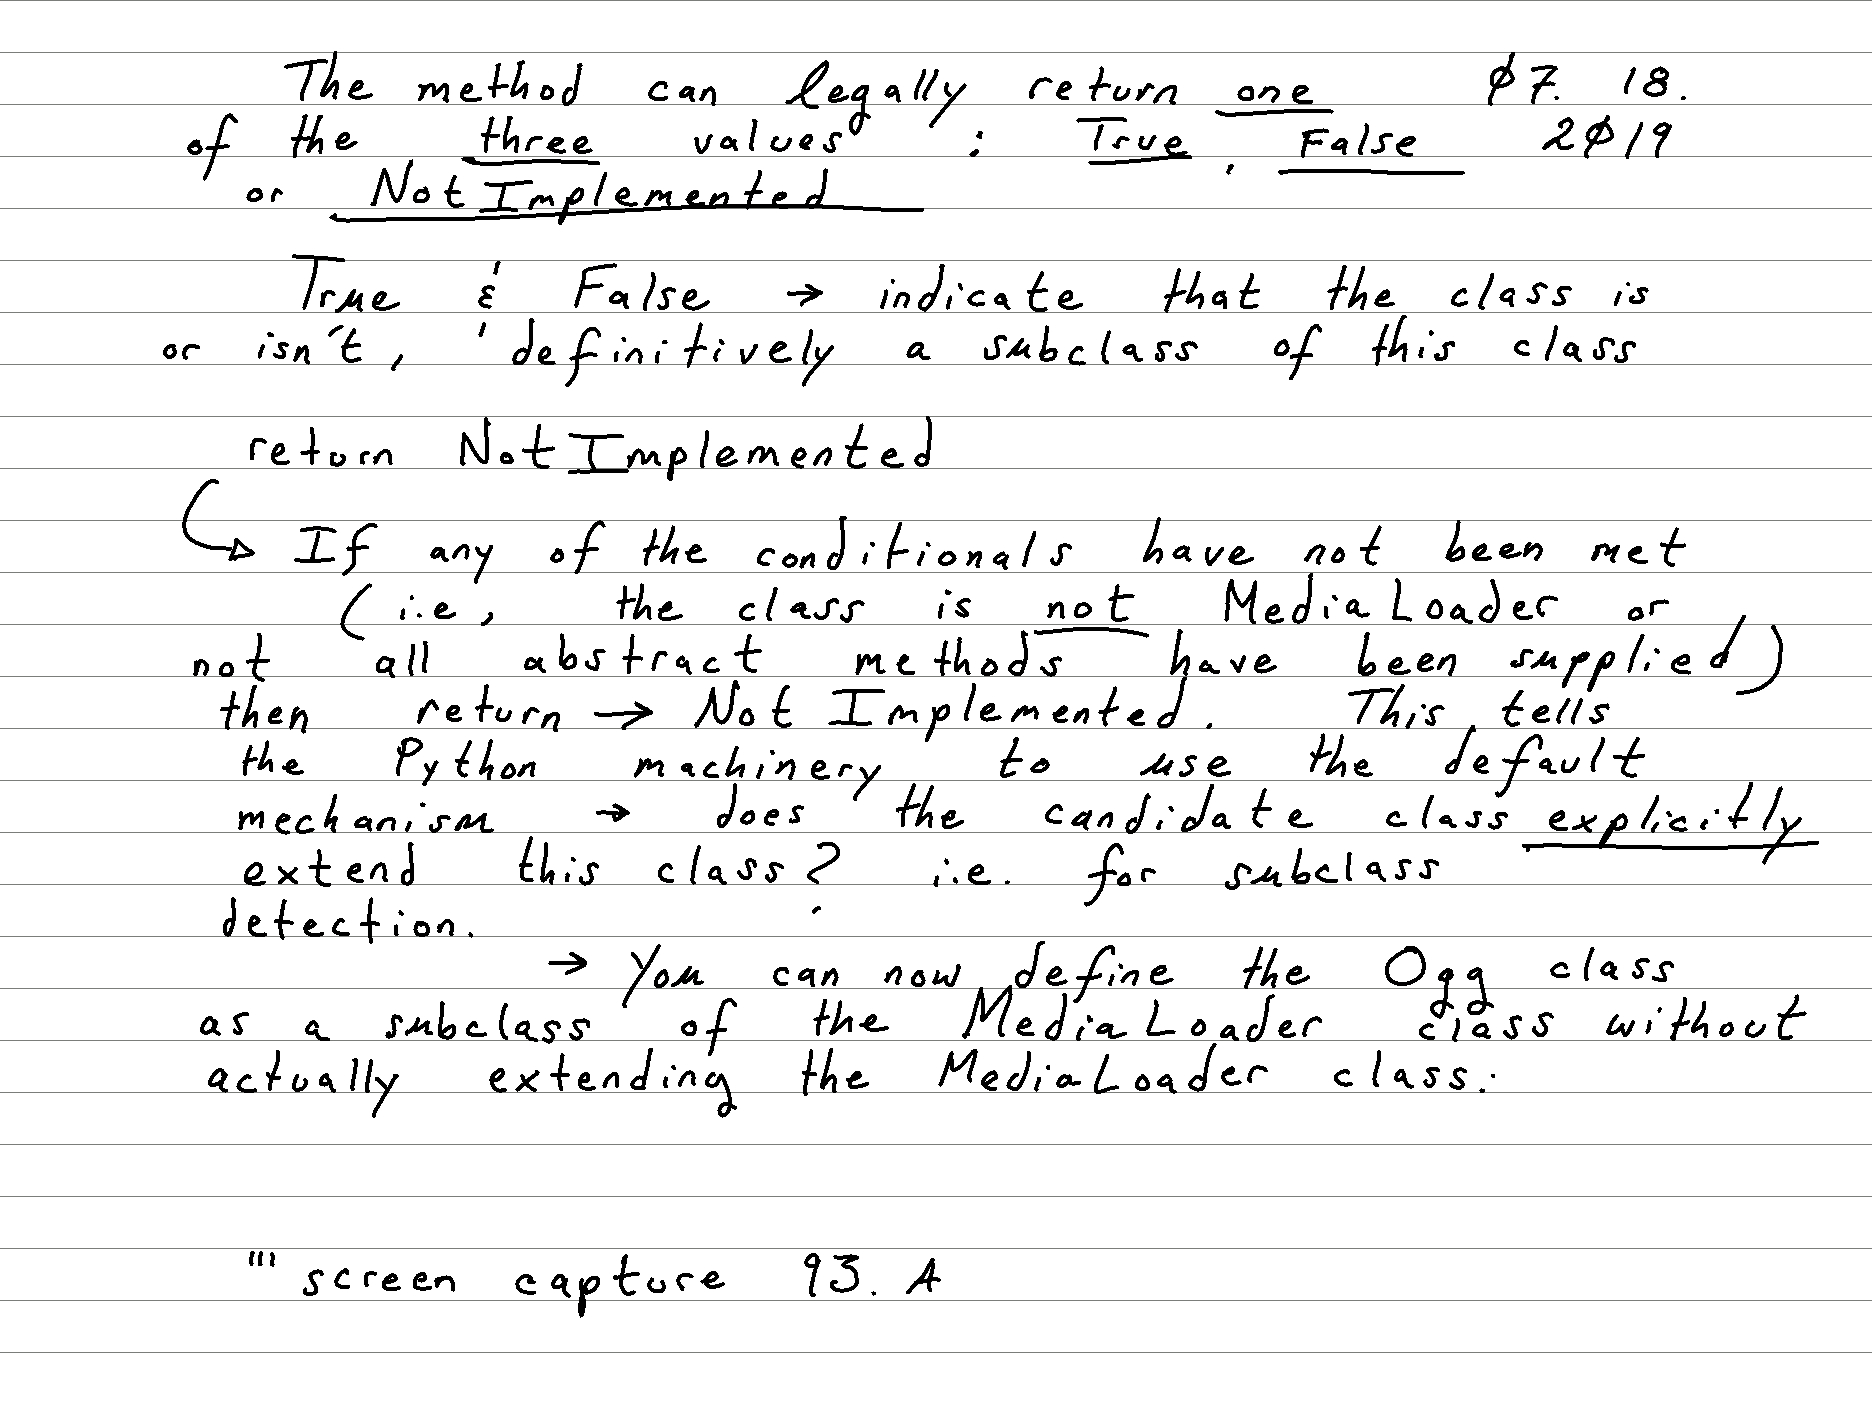 The method can legally return one 07. 18.
of the three values : True, False 2019
or NotImplemented
True & False → indicate that the class is
or isn't, definitively a subclass of this class
return NotImplemented
↳ If any of the conditionals have not been met
(i.e, the class is not MediaLoader or
not all abstract methods have been supplied)
then return → NotImplemented. This tells
the Python machinery to use the default
mechanism → does the candidate class explicitly
extend this class? i.e. for subclass
detection.
→ You can now define the Ogg class
as a subclass of the MediaLoader class without
actually extending the MediaLoader class.
''' screen capture 93. A